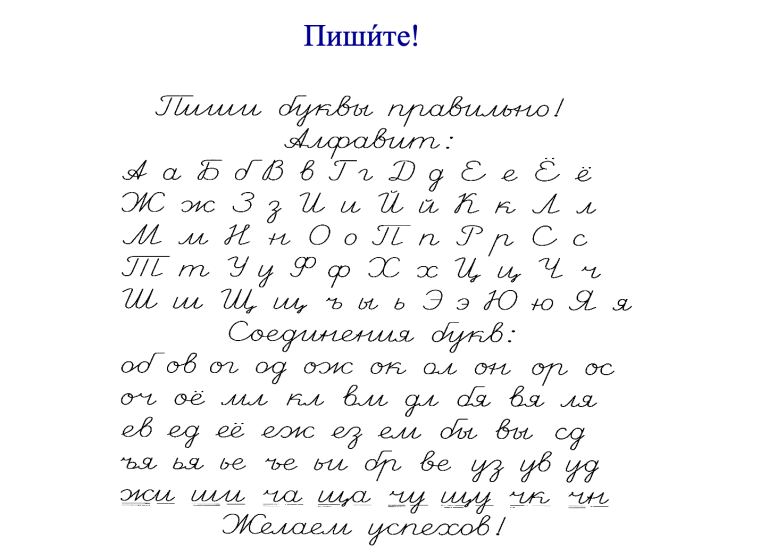 Пиши́те!
Пиши буквы правильно!
Алфавит:
А а Б б В в Г г Д д Е е Ё ё
Ж ж З з И и Й й К к Л л
М м Н н О о П п Р р С с
Т т У у Ф ф Х х Ц ц Ч ч
Ш ш Щ щ ъ ы ь Э э Ю ю Я я
Соединения букв:
об ов ог од ож ок ол он ор ос
оч оё мл кл вм дл бя вя ля
ев ед её еж ез ем бы вы сд
ъя ья ье ъе ьи бр ве уз ув уд
жи ши ча ща чу щу чк чн
Желаем успехов!